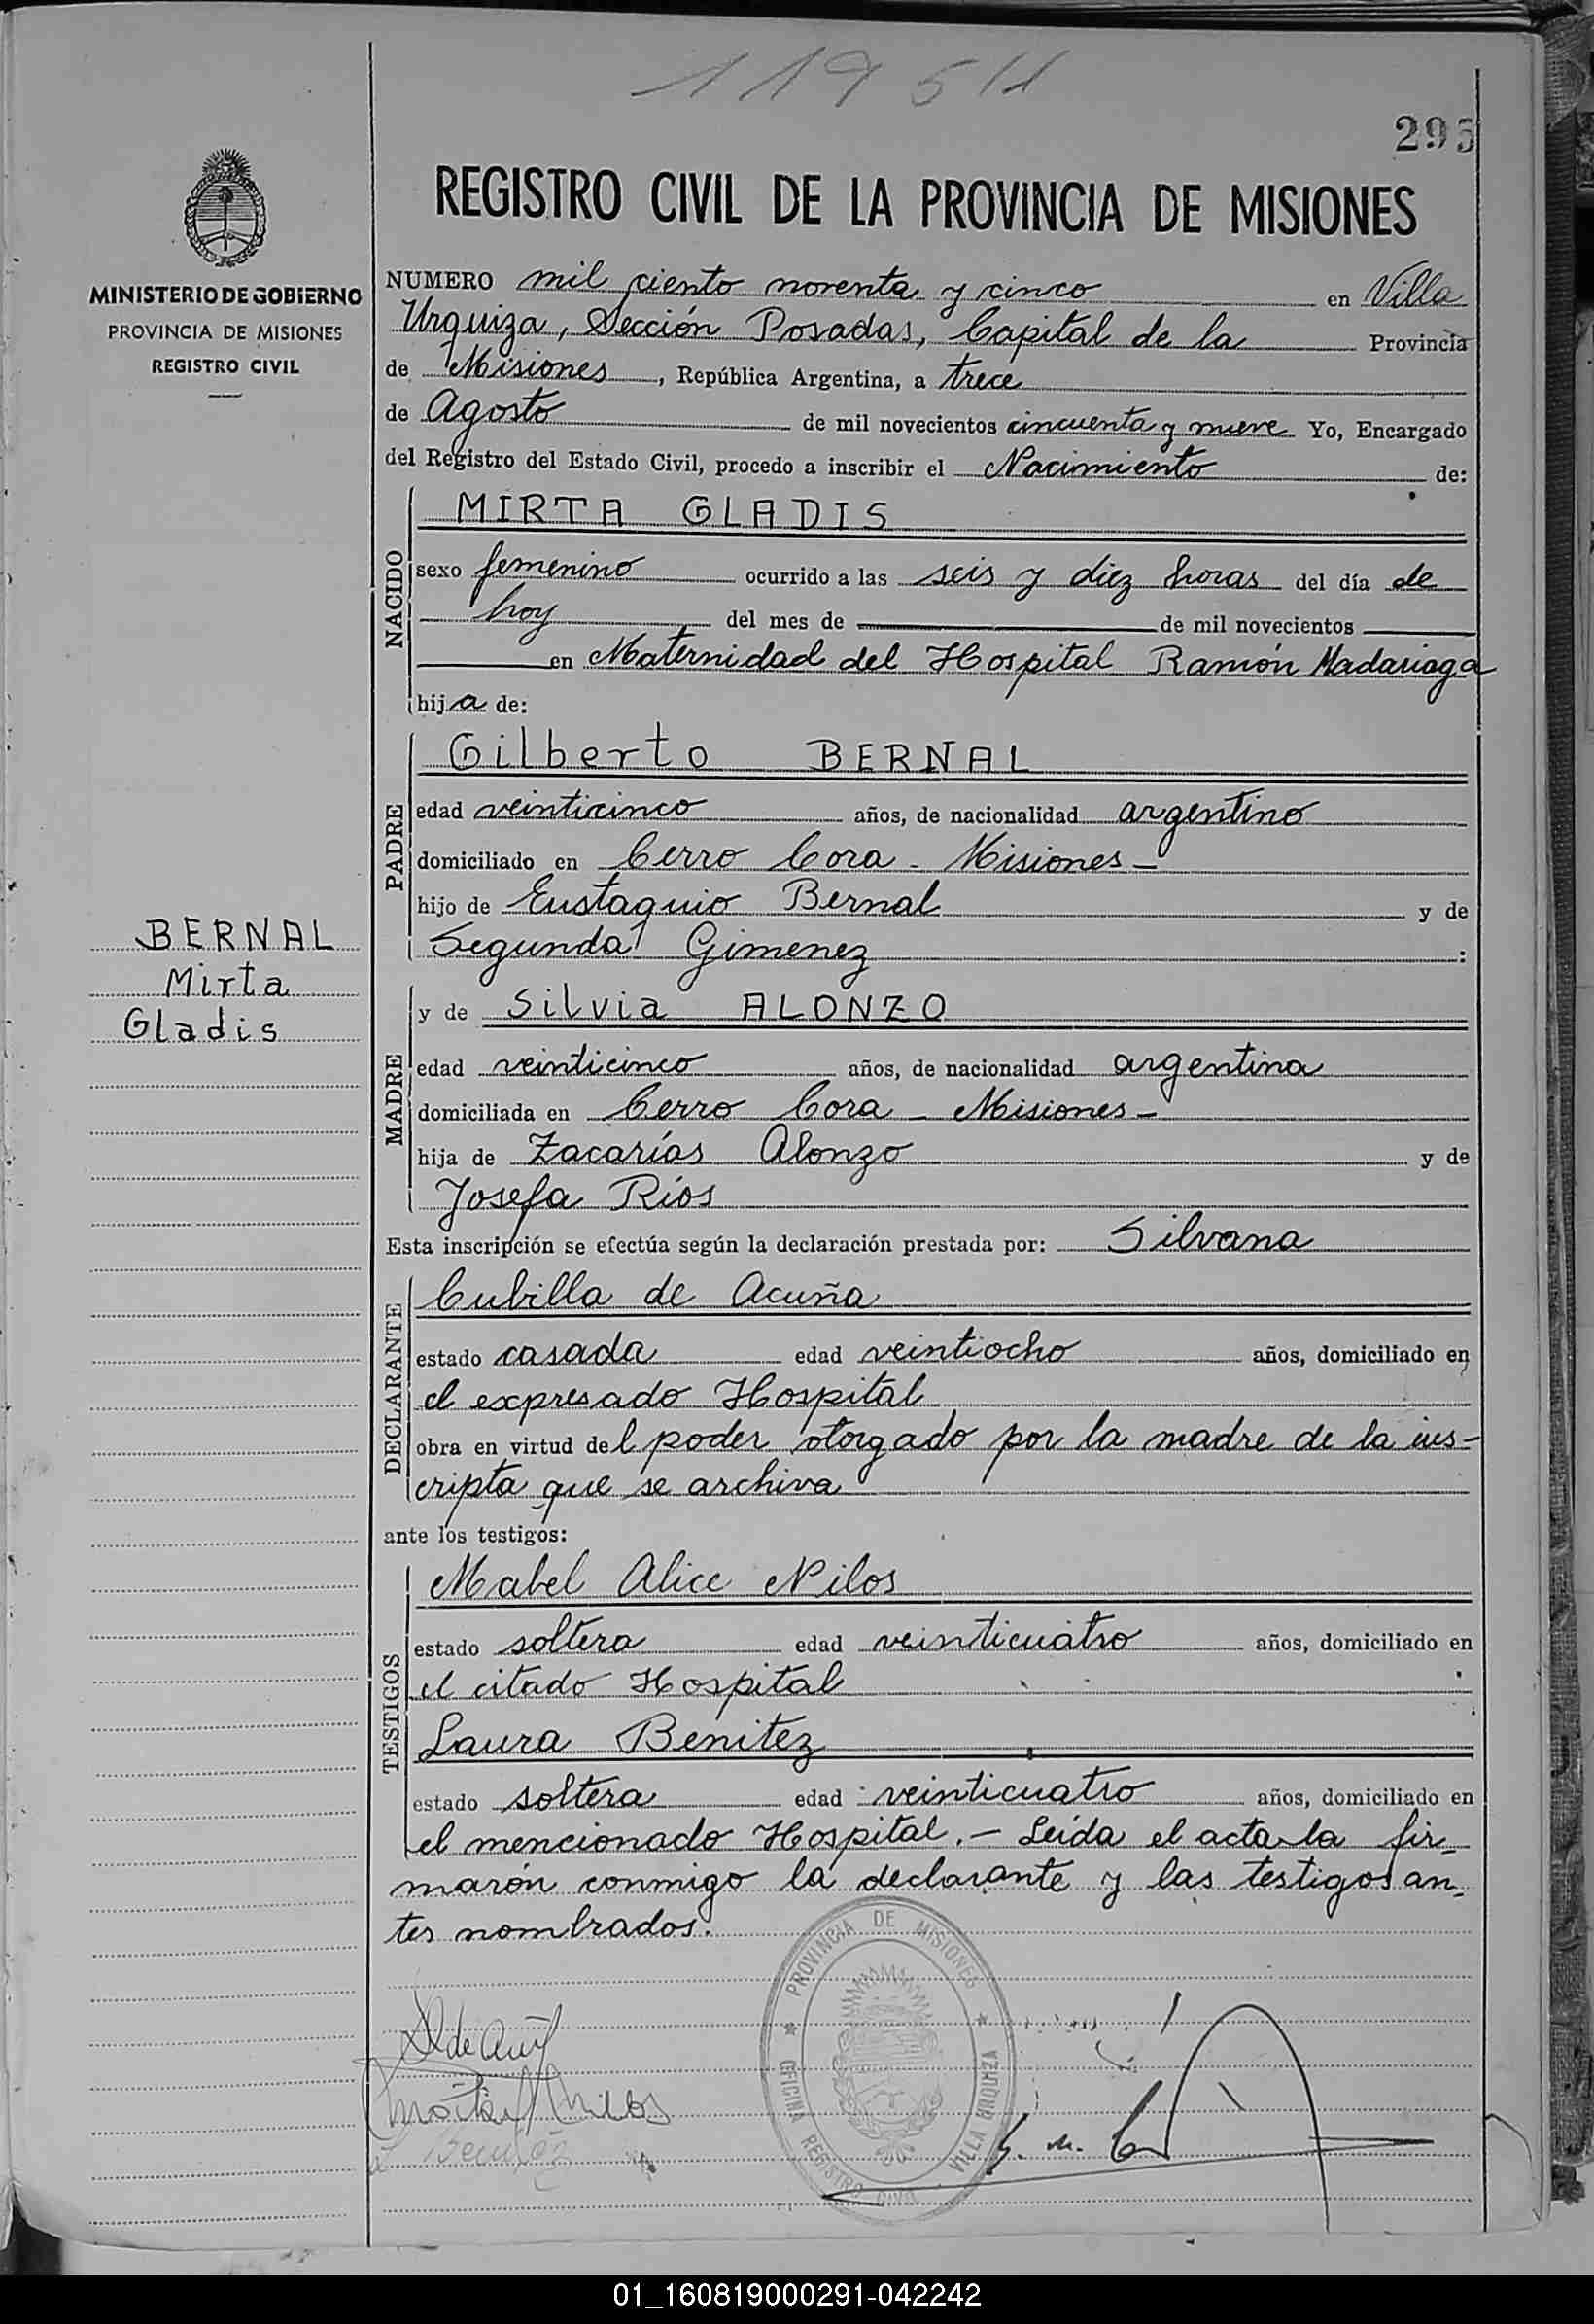 295
REGISTRO CIVIL DE LA PROVINCIA DE MISIONES
MINISTERIO DE GOBIERNO
PROVINCIA DE MISIONES
REGISTRO CIVIL
NUMERO mil ciento noventa y cinco en Villa
Urquiza, Sección Posadas, Capital de la Provincia
de Misiones, República Argentina, a trece
de Agosto de mil novecientos cincuenta y nueve Yo, Encargado
del Registro del Estado Civil, procedo a inscribir el Nacimiento de:
NACIDO
MIRTA GLADIS
sexo femenino ocurrido a las seis y diez horas del día de
hoy del mes de de mil novecientos
en Maternidad del Hospital Ramón Madariaga
hija de:
PADRE
Gilberto BERNAL
edad veinticinco años, de nacionalidad argentino
domiciliado en Cerro Cora - Misiones -
hijo de Eustaquio Bernal y de
Segunda Gimenez :
BERNAL
Mirta
Gladis
MADRE
y de Silvia ALONZO
edad veinticinco años, de nacionalidad argentina
domiciliada en Cerro Cora - Misiones -
hija de Zacarías Alonzo y de
Josefa Ríos
Esta inscripción se efectúa según la declaración prestada por: Silvana
DECLARANTE
Cubilla de Acuña
estado casada edad veintiocho años, domiciliado en
el expresado Hospital
obra en virtud del poder otorgado por la madre de la ins-
cripta que se archiva
ante los testigos:
TESTIGOS
Mabel Alice Nilos
estado soltera edad veinticuatro años, domiciliado en
el citado Hospital
Laura Benitez
estado soltera edad veinticuatro años, domiciliado en
el mencionado Hospital. - Leída el acta la fir-
maron conmigo la declarante y las testigos an-
tes nombrados.
PROVINCIA DE MISIONES
OFICINA REGISTRO CIVIL VILLA URQUIZA
01_160819000291-042242